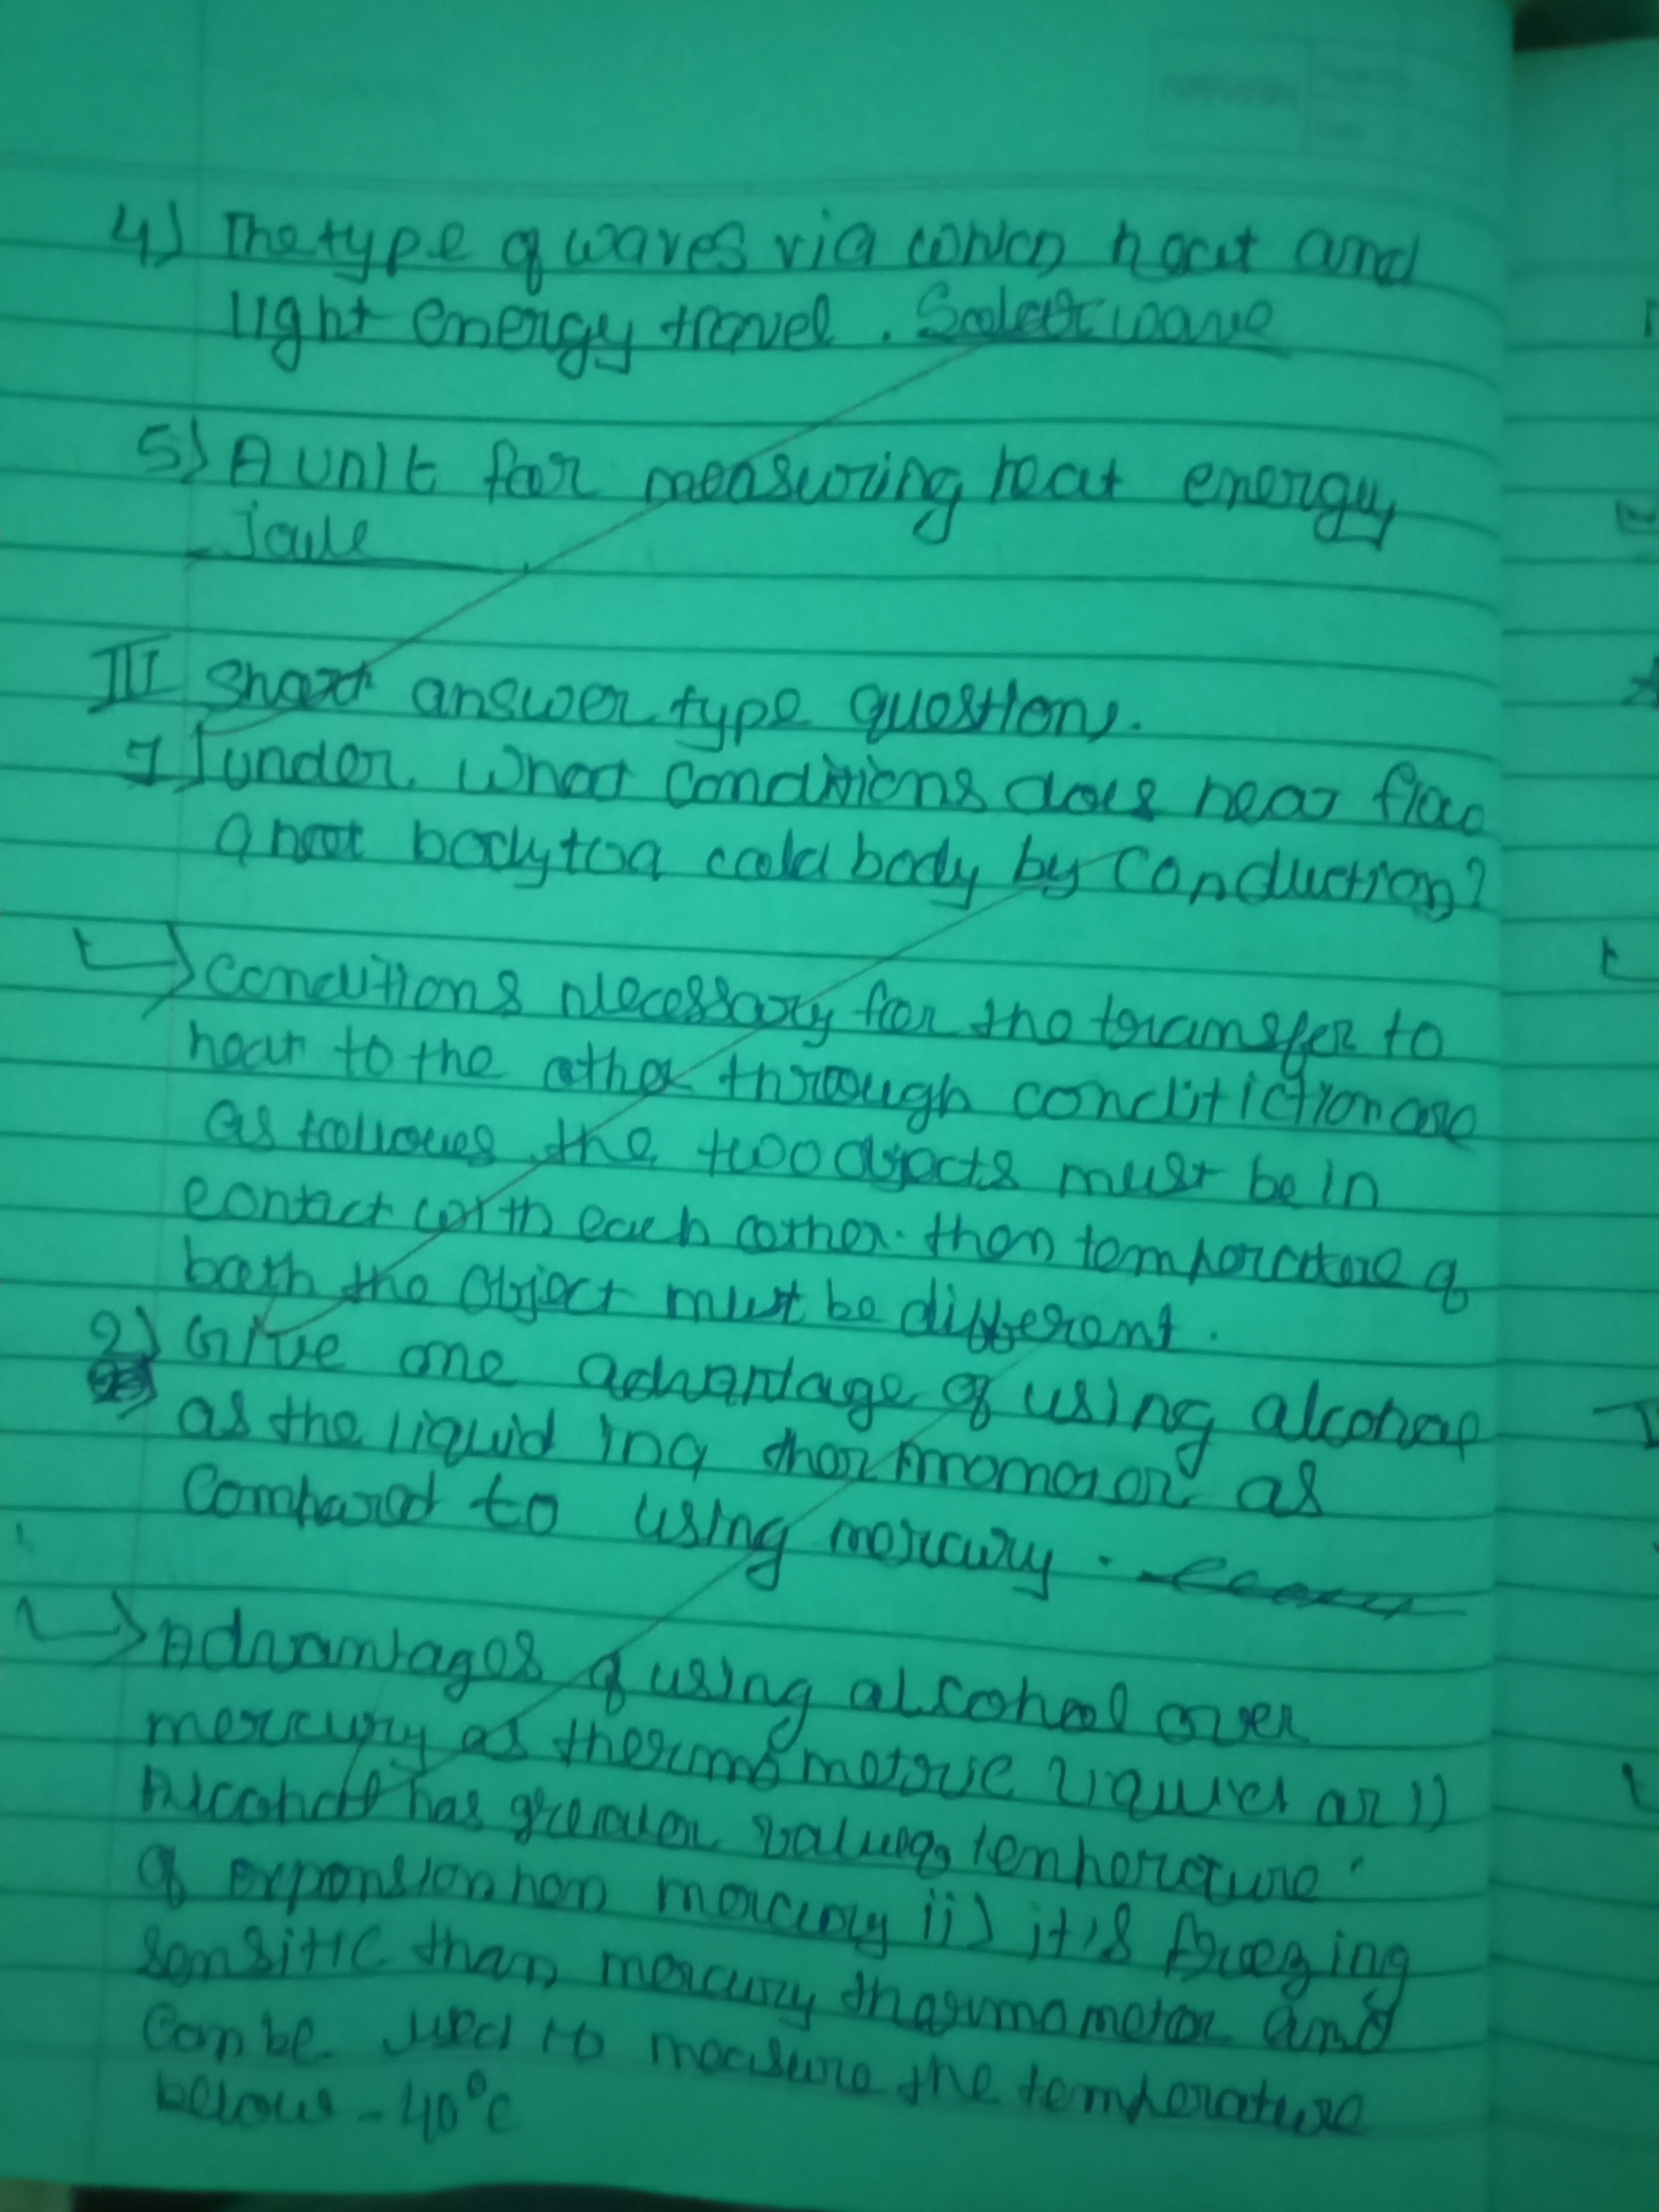 4) The type of waves via which heat and
light energy travel. wave
5) A unit for measuring heat energy
joule
III Short answer type question.
1] under what conditions does hear flow
a hoot body to a cold body by conduction?
conditions necessary for the transfer to
hear to the other through are
as follows the two objects must be in
contact with each other. then temperature of
both the object must be different.
2) Give one advantage of using alcohap
as the liquid in a as
Compared to using mercury.
Advantages of using alcohol over
mercury as thermometric liquid ar i)
Alcohol has greater value temperature
of expansion mercury ii) it's freezing
than mercury thermometer and
can be used to measure the temperature
below -40°c